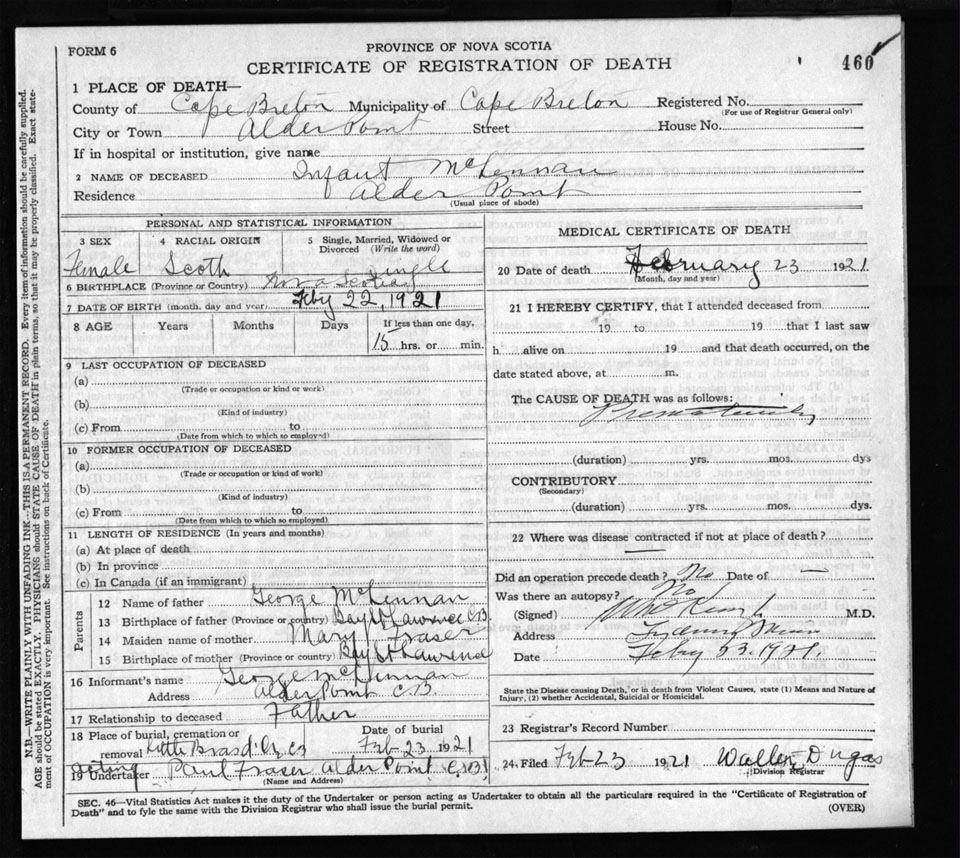 FORM 6
PROVINCE OF NOVA SCOTIA
CERTIFICATE OF REGISTRATION OF DEATH
460
1 PLACE OF DEATH—
County of Cape Breton Municipality of Cape Breton Registered No.
(For use of Registrar General only)
City or Town Alder Point Street House No.
If in hospital or institution, give name
2 NAME OF DECEASED Infant McLennan
Residence Alder Point
(Usual place of abode)
PERSONAL AND STATISTICAL INFORMATION
3 SEX 4 RACIAL ORIGIN 5 Single, Married, Widowed or Divorced (Write the word)
Female Scoth Single
6 BIRTHPLACE (Province or Country) Nova Scotia
7 DATE OF BIRTH (month, day and year) Feby 22, 1921
8 AGE Years Months Days If less than one day,
15 hrs. or min.
9 LAST OCCUPATION OF DECEASED
(a)
(Trade or occupation or kind or work)
(b)
(Kind of industry)
(c) From to
(Date from which to which so employed)
10 FORMER OCCUPATION OF DECEASED
(a)
(Trade or occupation or kind of work)
(b)
(Kind of industry)
(c) From to
(Date from which to which so employed)
11 LENGTH OF RESIDENCE (In years and months)
(a) At place of death
(b) In province
(c) In Canada (if an immigrant)
Parents
12 Name of father George McLennan
13 Birthplace of father (Province or country) Bay St Lawrence C.B.
14 Maiden name of mother Mary Fraser
15 Birthplace of mother (Province or country) Bay St Lawrence
16 Informant's name George McLennan
Address Alder Point C.B.
17 Relationship to deceased Father
18 Place of burial, cremation or Date of burial
removal Little Bras d'Or CB Feb 23 1921
Acting
19 Undertaker Paul Fraser Alder Point C.B.
(Name and Address)
MEDICAL CERTIFICATE OF DEATH
20 Date of death February 23 1921
(Month, day and year)
21 I HEREBY CERTIFY, that I attended deceased from
19 to 19 that I last saw
h alive on 19 and that death occurred, on the
date stated above, at m.
The CAUSE OF DEATH was as follows:
Prematurity
(duration) yrs. mos. dys
CONTRIBUTORY
(Secondary)
(duration) yrs. mos. dys.
22 Where was disease contracted if not at place of death?
—
Did an operation precede death? No Date of —
Was there an autopsy? No
(Signed) M.D.
Address Sydney Mines
Date Feby 23. 1921.
State the Disease causing Death, or in death from Violent Causes, state (1) Means and Nature of
Injury, (2) whether Accidental, Suicidal or Homicidal.
23 Registrar's Record Number
24. Filed Feb 23 1921 Walter Dugas
Division Registrar
SEC. 46—Vital Statistics Act makes it the duty of the Undertaker or person acting as Undertaker to obtain all the particulars required in the "Certificate of Registration of
Death" and to fyle the same with the Division Registrar who shall issue the burial permit.
(OVER)
N.B.—WRITE PLAINLY WITH UNFADING INK—THIS IS A PERMANENT RECORD. Every item of information should be carefully supplied.
AGE should be stated EXACTLY. PHYSICIANS should STATE CAUSE OF DEATH in plain terms, so that it may be properly classified. Exact state-
ment of OCCUPATION is very important. See instructions on back of Certificate.